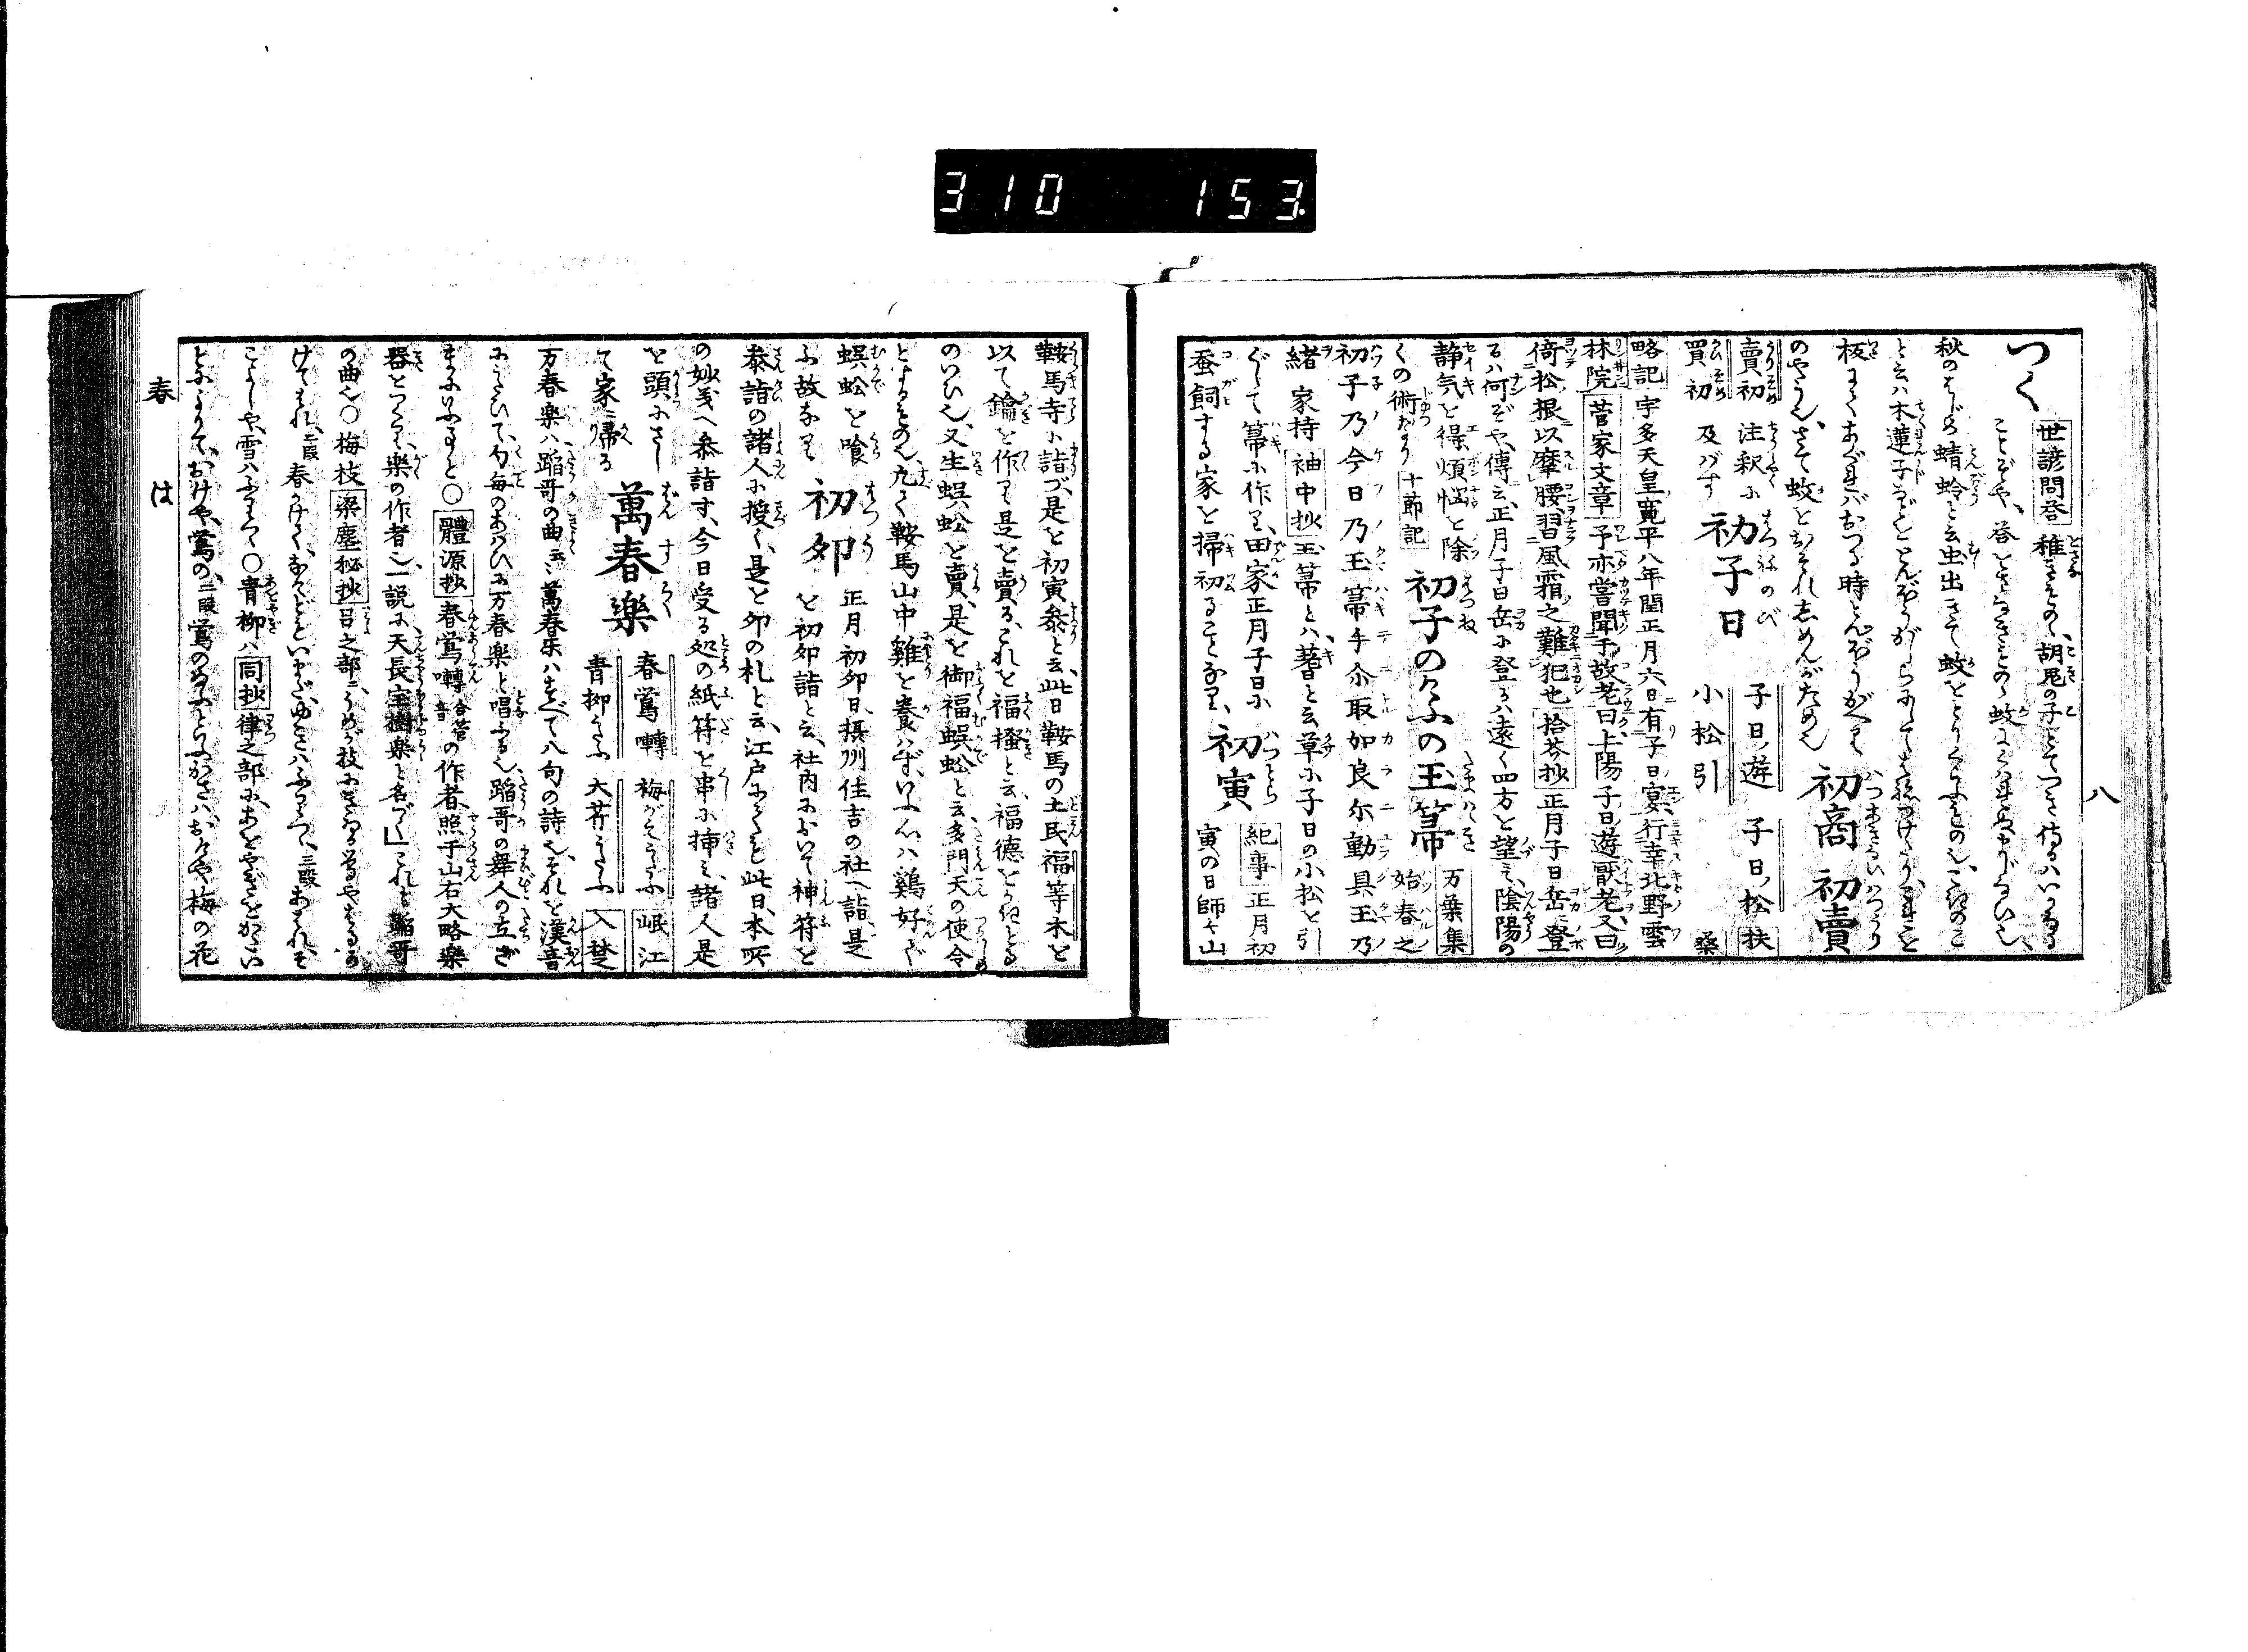 310 153.
八
つく 世諺問答 稚きものゝ胡鬼の子とてつき侍るハいかなる
ことぞや、答これハおさなきものゝ蚊にくはれぬまじなひ也、
秋のはじめ蜻蛉と云虫出きて蚊をとりくふもの也、こぎのこ
と云ハ木蓮子などをとんばうがしらにしてはねをつけたり、これを
板にてつきあぐれバおつる時とんぼうがへり
のやう也、さて蚊をおそれしめんがため也 初商 初賣
賣初 注釈に
買初 及バず 初子日 子日ノ遊 子日ノ松 扶桑
小松引
略記 宇多天皇寛平八年閏正月六日有子日宴、行幸北野雲
林院 菅家文章 予亦嘗聞于故老曰、上陽子日遊厭老、又曰
倚松根以摩腰、習風霜之難犯也 拾芥抄 正月子日岳ニ登
るハ何ぞや、傳云、正月子日岳に登りハ遠く四方を望ミ、陰陽の
静気を得煩悩を除
くの術なり 十節記 初子のけふの玉箒 万葉集 始春之
初子乃今日乃玉箒手尓取加良尓動具玉乃
緒 家持 袖中抄 玉箒とハ、蓍と云草に子日の小松を引
ぐして箒に作り、田家正月子日に
蚕飼する家を掃初ることなり、 初寅 紀事 正月初
寅の日師〻山
鞍馬寺に詣づ、是を初寅参と云、此日鞍馬の土民福等木を
以て鑰を作り是を賣る、これを福掻と云、福徳をかきとる
のいひ也、又生蜈蚣を賣、是を御福蜈蚣と云、多門天の使令
とするもの也、凡て鞍馬山中雞を養ハず、いふ心ハ鷄好で
蜈蚣を喰
ふ故なり 初卯 正月初卯日、摂州住吉の社へ詣、是
を初卯詣と云、社内において神符を
参詣の諸人に授く、是を卯の札と云、江戸にても此日、本所
の妙義へ参詣す、今日受る処の紙符を串に挿ミ、諸人是
を頭にさし
て家ニ帰る 萬春樂 春鶯囀 梅がえうたふ 岷江
青柳うたふ 大芹うたふ 入楚
万春楽ハ踏哥の曲云〻萬春楽ハすべて八句の詩也、それを漢音
にうたひて、句毎のあひに万春楽と唱ふる也、踏哥の舞人の立ざ
まにいふこと〇 體源抄 春鶯囀 合管音 の作者、照于山右大略樂
器をつくる、楽の作者也、一説に天長宝樹楽と名づく」これも踏哥
の曲也〇梅枝 梁塵秘抄 呂之部ニうめが枝にきゐる鶯やはるか
けてはれ、二段 春かけて、なけどもいまだ、ゆきハふりつゝ、三段 あはれ、そ
こよしや、雪ハふりつゝ〇青柳ハ 同抄 律之部に、あをやぎをかたい
とによりて、おけや、鶯の、二段 鶯のぬふといふかさハ、おけや、梅の花
春 は